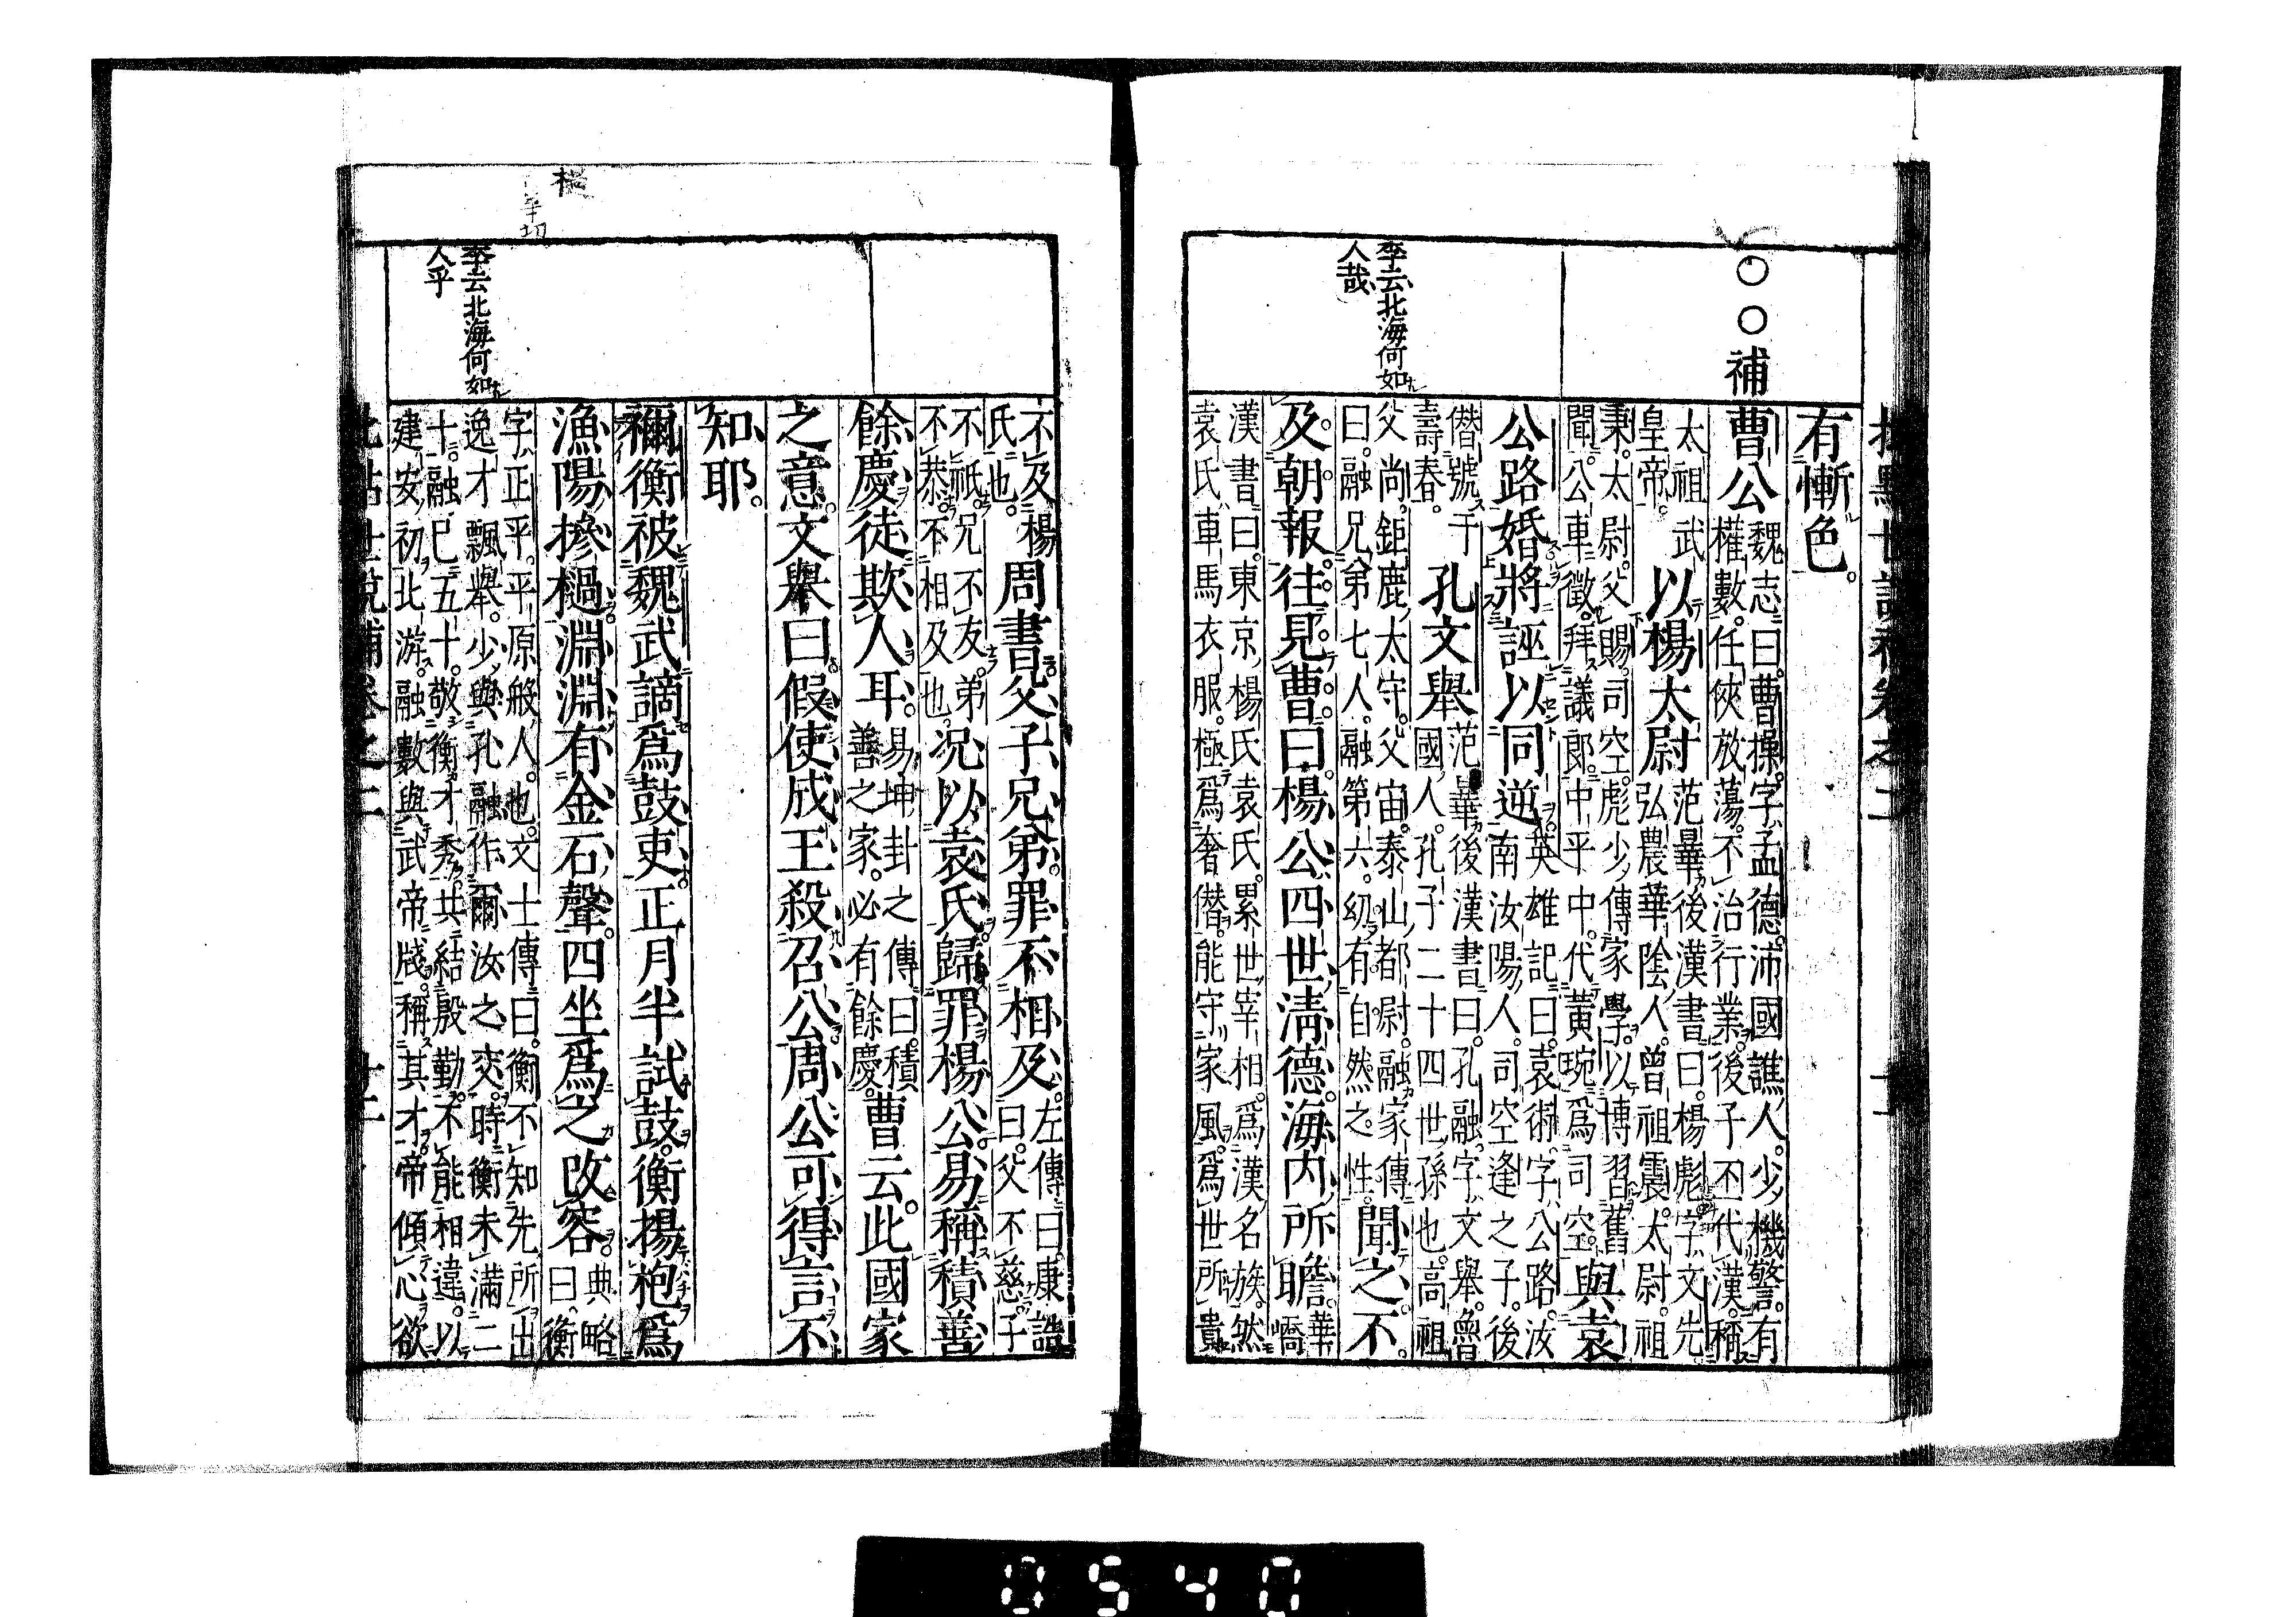 有慚色。
○○補
曹公
魏志曰。曹操。字孟德。沛國譙人。少機警。有
權數。任俠放蕩。不治行業。後子丕代漢。稱
太祖武
皇帝。
以楊太尉
范曄後漢書曰。楊彪字文先
弘農華陰人。曾祖震。太尉。祖
秉。太尉。父賜。司空。彪少傳家學。以博習舊
聞。公車徵。拜議郎。中平中。代黃琬爲司空。
與袁
公路婚將誣以同逆。
英雄記曰。袁術。字公路。汝
南汝陽人。司空逢之子。後
僣號于
壽春。
孔文舉
范曄後漢書曰。孔融。字文舉。魯
國人。孔子二十四世孫也。高祖
父尚。鉅鹿太守。父宙。泰山都尉。融家傳
曰。融兄弟七人。融第六。幼有自然之性。
聞之不
李云北海何如
人哉
及。朝報。往見曹。曰。楊公四世淸德。海內所瞻。
華
嶠
漢書曰。東京楊氏袁氏。累世宰相。爲漢名族。然
袁氏車馬衣服。極爲奢僣。能守家風。爲世所貴
不及楊
氏也。
周書父子兄弟。罪不相及。
左傳曰。康誥
曰。父不慈。子
不祇。兄不友。弟
不恭。不相及也。
況以袁氏歸罪楊公。易稱積善
餘慶徒欺人耳。
易坤卦之傳曰。積
善之家。必有餘慶。
曹云。此國家
之意。文舉曰。假使成王殺召公。周公可得言不
知耶。
禰衡被魏武謫爲鼓吏。正月半試鼓。衡揚枹爲
漁陽摻檛。淵淵有金石聲。四坐爲之改容。
典略
曰。衡
李云北海何如
人乎
字正平。平原般人也。文士傳曰。衡不知先所出
逸才飄舉。少與孔融作爾汝之交。時衡未滿二
十。融巳五十。敬衡才秀。共結殷勤。不能相違。以
建安初北游。融數與武帝牋。稱其才。帝傾心欲
0540